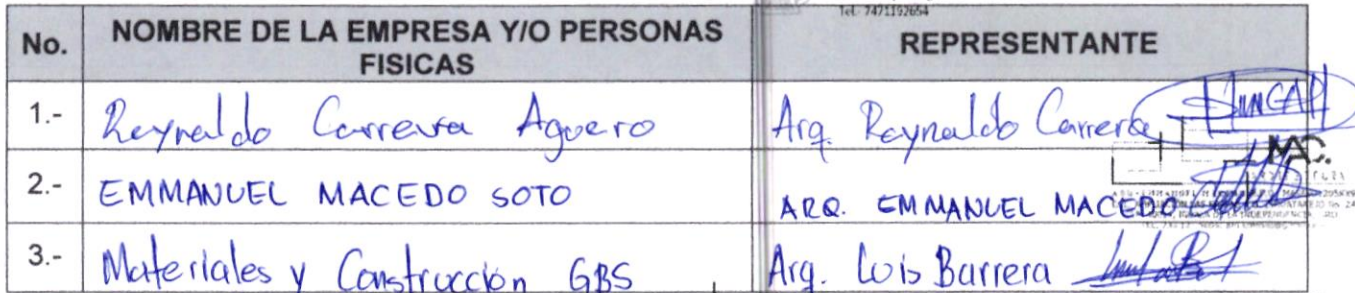 Tel. 7471192654
No. NOMBRE DE LA EMPRESA Y/O PERSONAS FISICAS REPRESENTANTE
1.- Reynaldo Carrera Aguero Arq. Reynaldo Carrera
MAC.
2.- EMMANUEL MACEDO SOTO ARQ. EMMANUEL MACEDO
3.- Materiales y Construcción GBS Arq. Luis Barrera